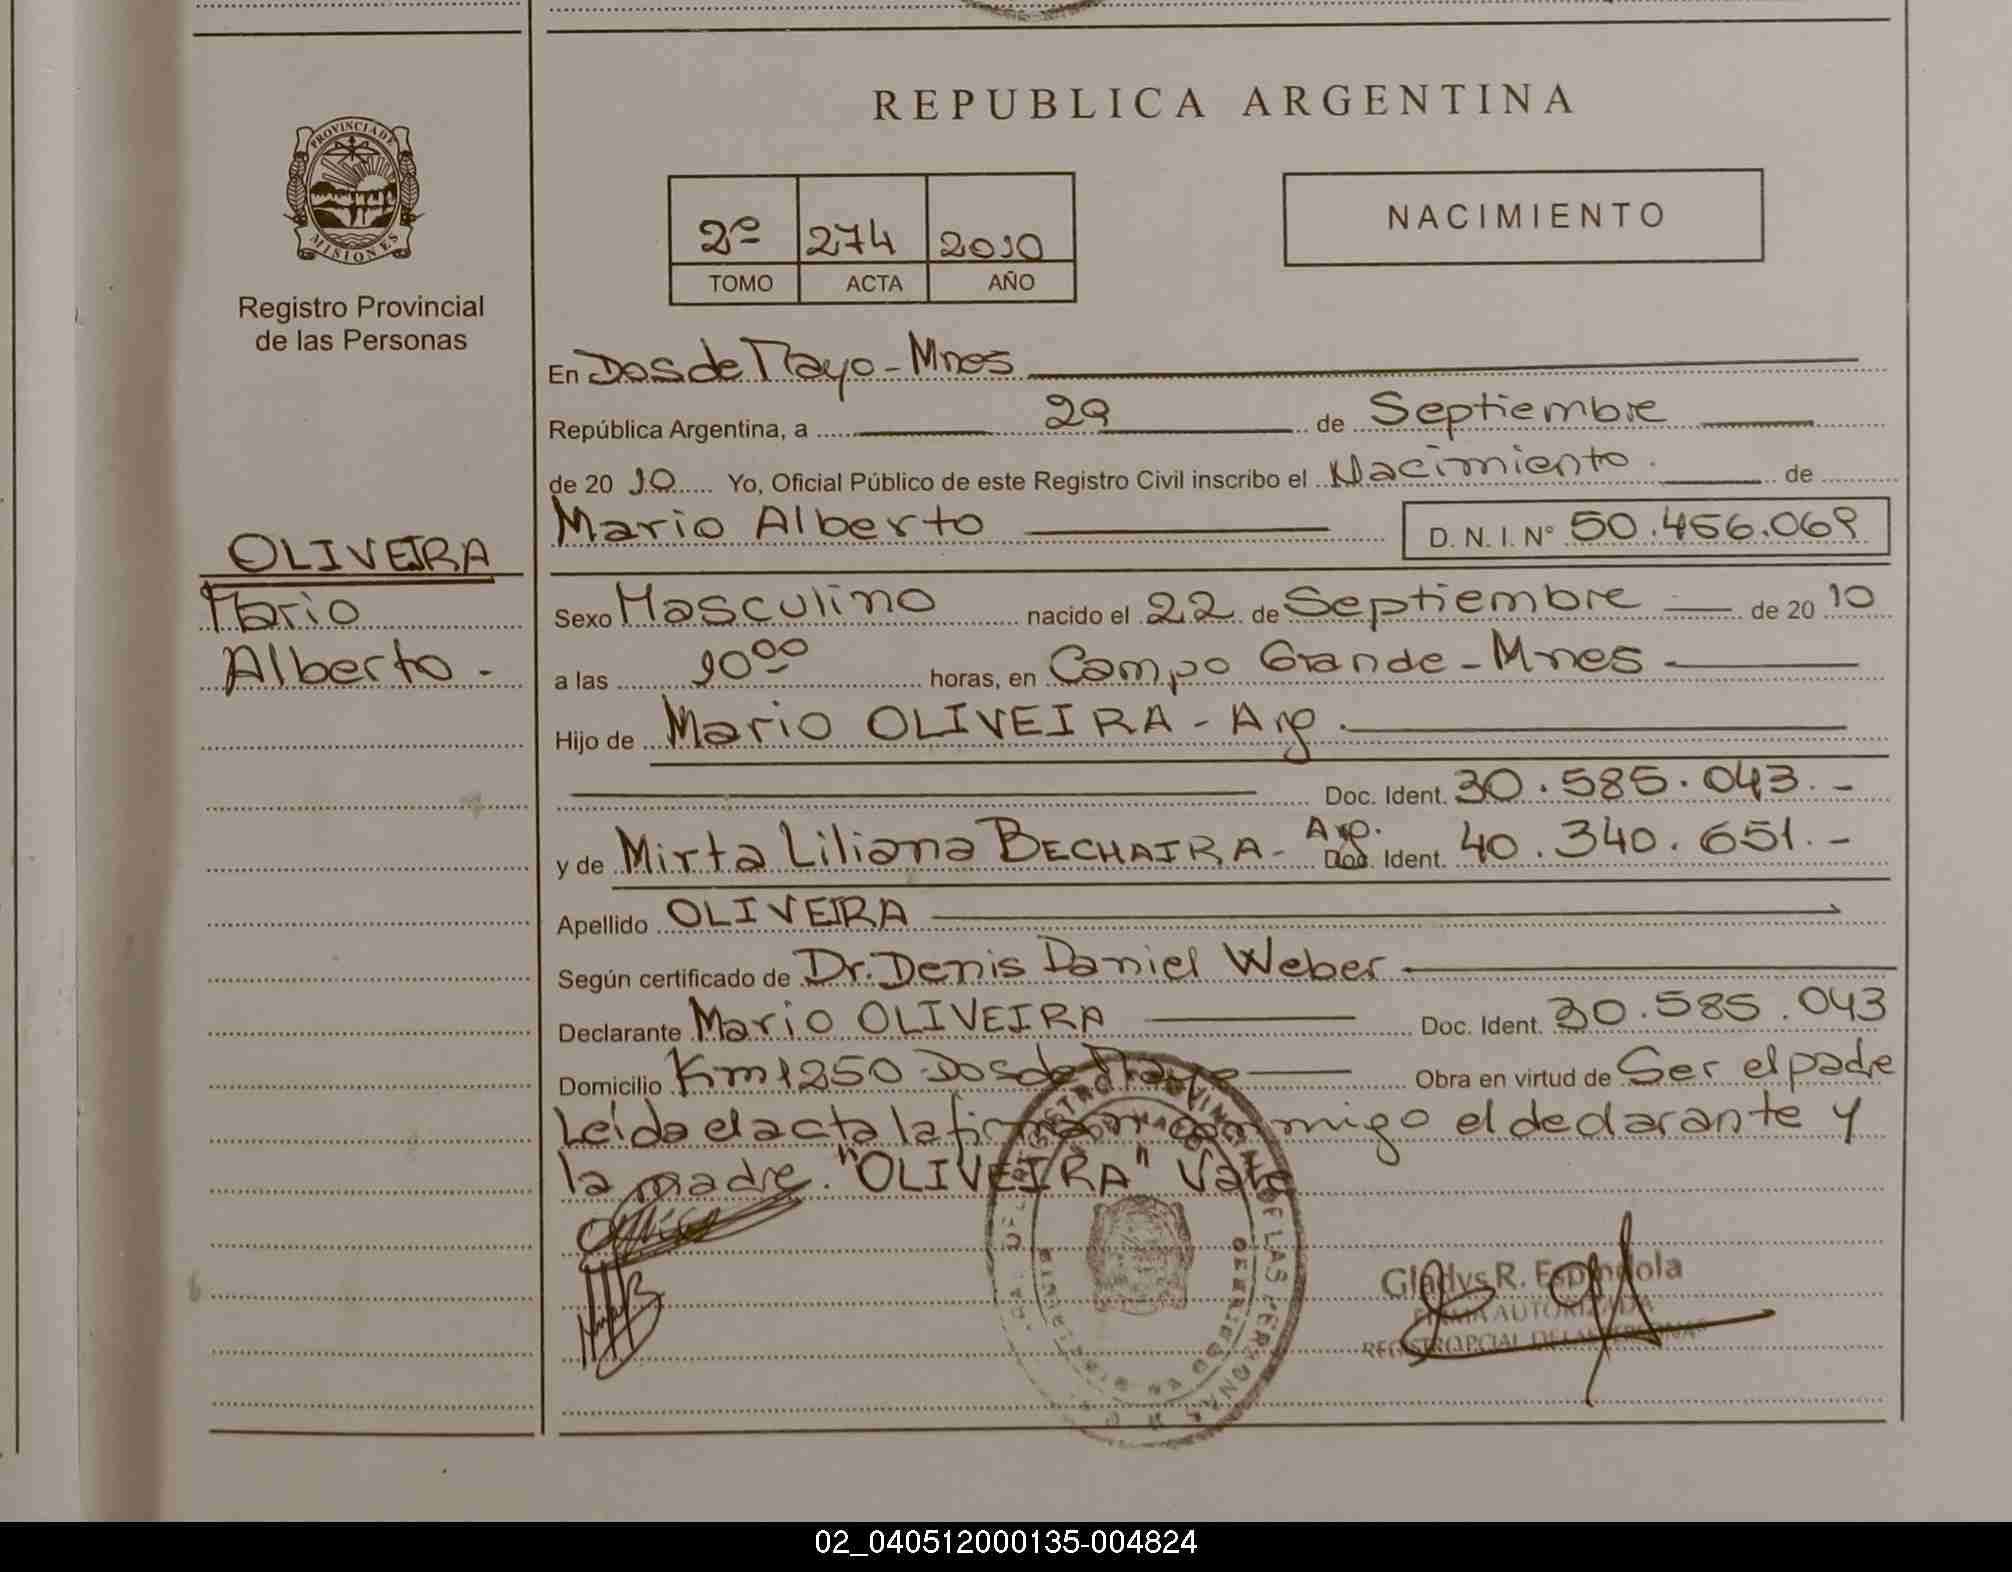 PROVINCIA DE
MISIONES
Registro Provincial
de las Personas
OLIVEIRA
Mario
Alberto -
REPUBLICA ARGENTINA
2º 274 2010
TOMO ACTA AÑO
NACIMIENTO
En Dos de Mayo - Mnes
República Argentina, a 29 de Septiembre
de 20 10 Yo, Oficial Público de este Registro Civil inscribo el Nacimiento. de
Mario Alberto D. N. I. Nº 50.456.069
Sexo Masculino nacido el 22 de Septiembre de 20 10
a las 10 00 horas, en Campo Grande - Mnes
Hijo de Mario OLIVEIRA - Arg.
Doc. Ident. 30.585.043.-
y de Mirta Liliana BECHAIRA - Arg. Doc. Ident. 40.340.651.-
Apellido OLIVEIRA
Según certificado de Dr. Denis Daniel Weber
Declarante Mario OLIVEIRA Doc. Ident. 30.585.043
Domicilio Km 1250 Dos de Mayo Obra en virtud de Ser el padre
Leída el acta la firman conmigo el declarante y
la madre. "OLIVEIRA" Vale
Gladys R. Espindola
FIRMA AUTORIZADA
REGISTRO PCIAL DE LAS PERSONAS
02_040512000135-004824